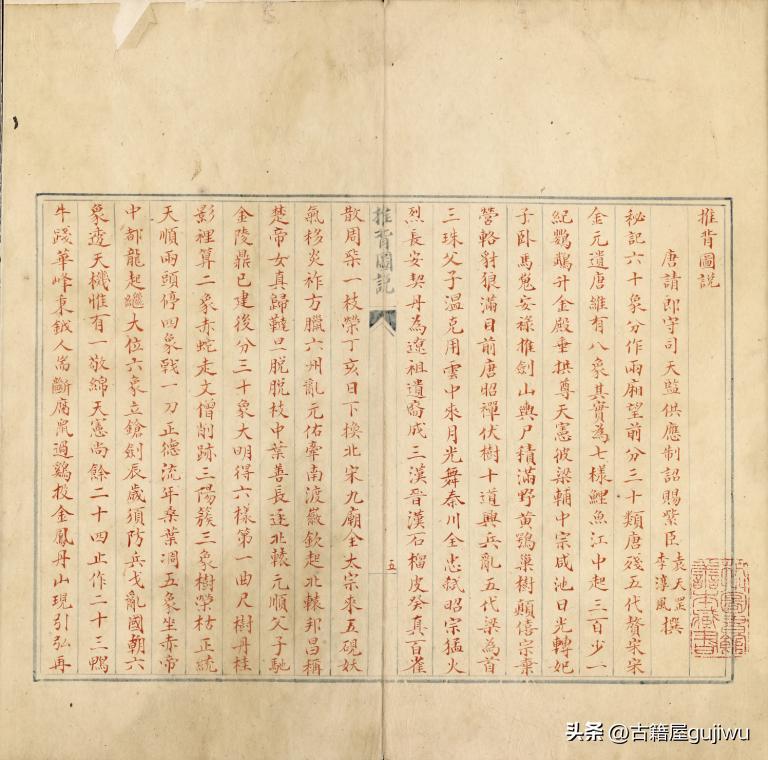 推背圖説
唐請郎守司天監供應制詔賜紫臣袁天罡李淳風撰
秘記六十象分作兩廂望前分三十類唐殘五代贅宋宋
金元遺唐雖有八象其實為七樣鯉魚江中起三百少一
紀鸚鵡升金殿垂拱尊天憲彼梁輔中宗咸池日光轉妃
子臥馬嵬安祿推劍山輿尸積滿野黃鶚巢樹顛僖宗棄
營輅豺狼滿目前唐昭禪伏樹十道興兵亂五代梁為首
三珠父子溫克用雲中來月光舞秦川全忠弒昭宗猛火
烈長安契丹為遼祖遺裔成三漢晉漢石榴皮癸真百雀
推背圖説
五
散周柴一枝榮丁亥日下換北宋九廟全太宗來五硯妖
氣移炎祚方臘六州亂元佑牽南渡徽欽起北轅邦昌稱
楚帝女真歸韃旦脫脫枝中葉善長逐北轅元順父子馳
金陵鼎已建後分三十象大明得六樣第一曲尺樹丹桂
影裡算二象赤蛇走文僧削跡三陽發三象樹榮枯正統
天順兩頭停四象戟一刀正德流年桑葉凋五象坐赤帝
中都龍起繼大位六象立鎗劍辰歲須防兵戈亂國朝六
象透天機惟有一敬綿天憲尚餘二十四止作二十三鴨
牛踐華峰東鉞人嵩斷腐鼠過鷄投金鳳丹山現引弘再
头条 @古籍屋gujiwu